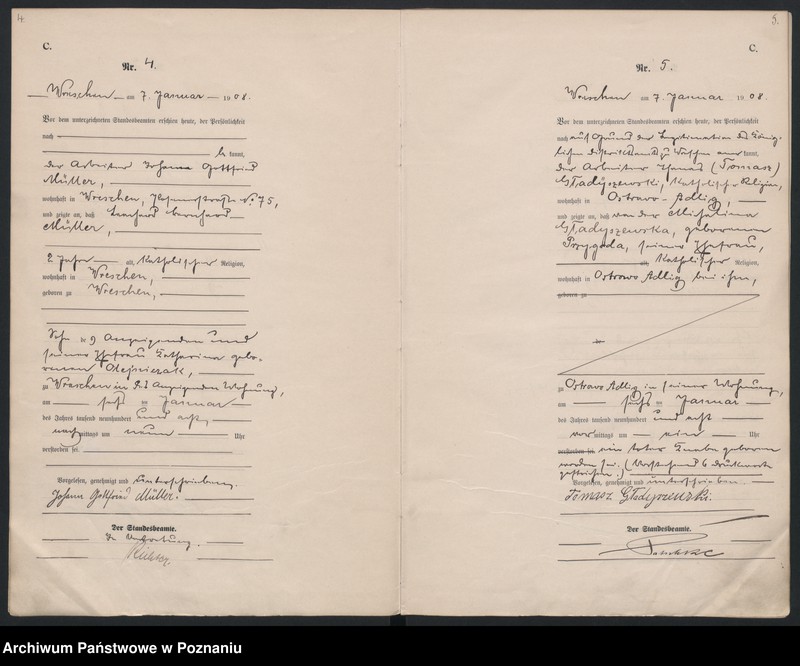 4.
C.
Nr. 4.
Wreschen am 7. Januar 1908.
Vor dem unterzeichneten Standesbeamten erschien heute, der Persönlichkeit
nach
be kannt,
der Arbeiter Johann Gottfried
Müller,
wohnhaft in Wreschen, No 75,
und zeigte an, daß Leonhard Bernhard
Müller,
2 Jahre alt, katholischer Religion,
wohnhaft in Wreschen,
geboren zu Wreschen,
Sohn des Anzeigenden und
seiner Ehefrau Katharina gebo-
renen Olejniczak,
zu Wreschen in des Anzeigenden Wohnung,
am sechs ten Januar
des Jahres tausend neunhundert und acht,
nach mittags um neun Uhr
verstorben sei.
Vorgelesen, genehmigt und unterschrieben.
Johann Gottfried Müller.
Der Standesbeamte.
In Vertretung.
5.
C.
Nr. 5.
Wreschen am 7. Januar 1908.
Vor dem unterzeichneten Standesbeamten erschien heute, der Persönlichkeit
nach auf Grund der Legitimation des König-
lichen Distriktsamts zu Wreschen aner kannt,
der Arbeiter Thomas (Tomasz)
Gładyszewski, katholischer Religion,
wohnhaft in Ostrowo-Adlig,
und zeigte an, daß von der Michalina
Gładyszewska, geborenen
Przygoda, seiner Ehefrau,
alt, katholischer Religion,
wohnhaft in Ostrowo Adlig bei ihm,
geboren zu
zu Ostrowo Adlig in seiner Wohnung,
am sechs ten Januar
des Jahres tausend neunhundert und acht
vor mittags um ein Uhr
verstorben sei. ein toter Knabe geboren
worden sei. (Vorstehend 6 Druckworte
gestrichen.)
Vorgelesen, genehmigt und unterschrieben.
Tomasz Gładyszewski.
Der Standesbeamte.
Archiwum Państwowe w Poznaniu